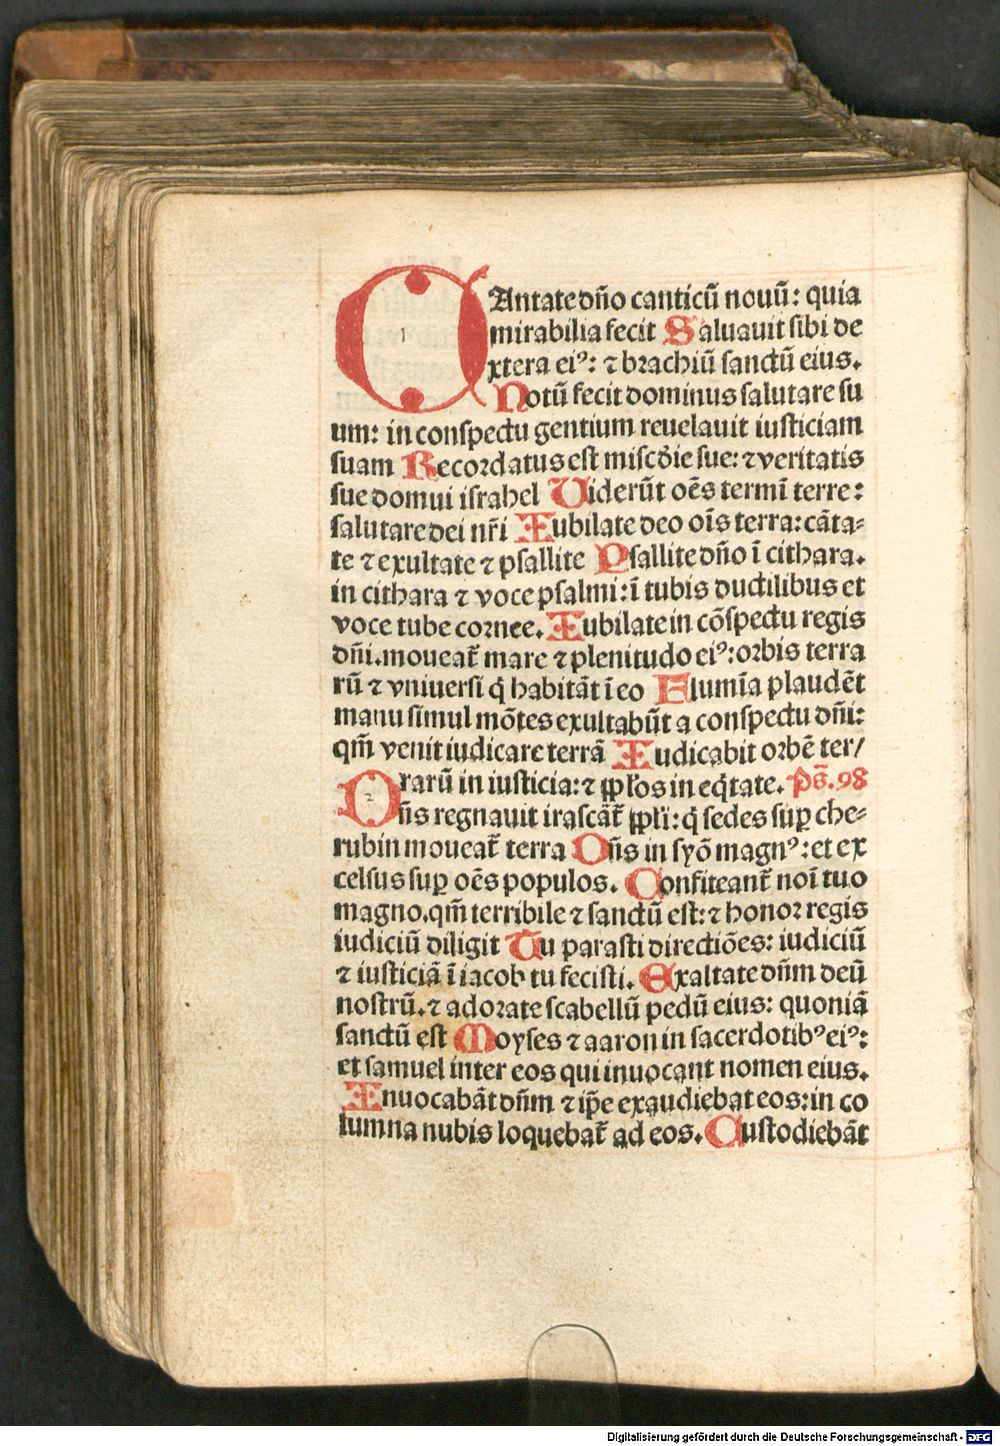 CAntate dño canticū nouū: quia
mirabilia fecit Saluauit sibi de
xtera eiꝰ: ⁊ brachiū sanctū eius.
Notū fecit dominus salutare su
um: in conspectu gentium reuelauit iusticiam
suam Recordatus est misc̄die sue: ⁊ veritatis
sue domui israhel Uiderūt oēs termī terre:
salutare dei nr̄i Iubilate deo oīs terra: cāta⸗
te ⁊ exultate ⁊ psallite Psallite dño ī cithara.
in cithara ⁊ voce psalmi: ī tubis ductilibus et
voce tube cornee. Iubilate in cōspectu regis
dñi. moueat̄ mare ⁊ plenitudo eiꝰ: orbis terra
rū ⁊ vniuersi q̄ habitāt ī eo Flumīa plaudēt
manu simul mōtes exultabūt a conspectu dñi:
qm̄ venit iudicare terrā Iudicabit orbē ter/
rarū in iusticia: ⁊ ꝓpl'os in eq̄tate. ps̄. 98
Dñs regnauit irascāt̄ ppl̄i: q̄ sedes sup̱ che⸗
rubin moueat̄ terra Dñs in syō magnꝰ: et ex
celsus sup̱ oēs populos. Confiteant̄ noī tuo
magno. qm̄ terribile ⁊ sanctū est: ⁊ honor regis
iudiciū diligit Tu parasti directiōes: iudiciū
⁊ iusticiā ī iacob tu fecisti. Exaltate dñm deū
nostrū. ⁊ adorate scabellū pedū eius: quoniā
sanctū est Moyses ⁊ aaron in sacerdotibꝰ eiꝰ:
et samuel inter eos qui inuocant nomen eius.
Inuocabāt dñm ⁊ ip̄e exaudiebat eos: in co
lumna nubis loquebat̄ ad eos. Custodiebāt
Digitalisierung gefördert durch die Deutsche Forschungsgemeinschaft - DFG